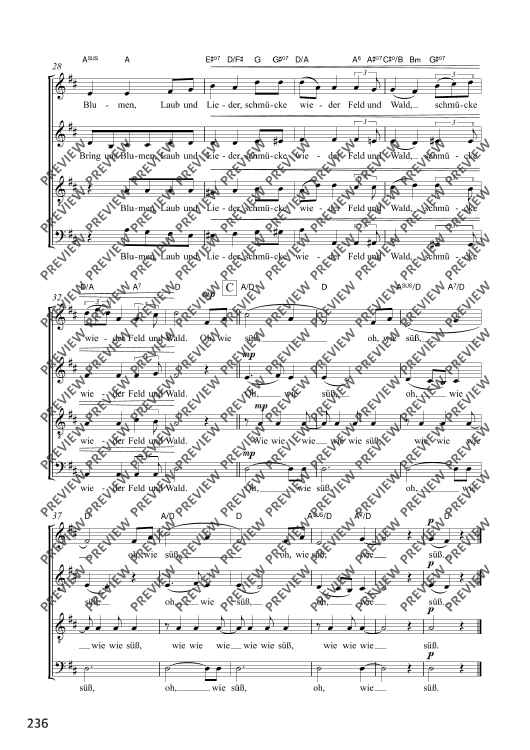 28 Asus A E♯°7 D/F♯ G G♯°7 D/A A6 A♯°7 C♯°/B Bm G♯°7
Blu - men, Laub und Lie - der, schmü-cke wie - der Feld und Wald, schmü-cke
Bring uns Blu-men, Laub und Lie - der, schmü-cke wie - der Feld und Wald, schmü-cke
Blu-men, Laub und Lie - der, schmü-cke wie - der Feld und Wald, schmü-cke
Blu-men, Laub und Lie - der, schmü-cke wie - der Feld und Wald, schmü-cke
32 D/A A7 D mp C A/D D Asus/D A7/D
wie - der Feld und Wald. Oh, wie süß, oh, wie süß,
mp
wie - der Feld und Wald. Oh, wie süß, oh, wie
mp
wie - der Feld und Wald. Wie wie wie wie wie süß, wie wie wie
mp
wie - der Feld und Wald. Oh, wie süß, oh, wie
37 D A/D D Asus/D A7/D p D
oh, wie süß, oh, wie süß, wie süß.
p
süß, oh, wie süß, oh, wie süß.
wie wie süß, wie wie wie wie wie süß, wie wie wie süß.
p
süß, oh, wie süß, oh, wie süß.
236
PREVIEW